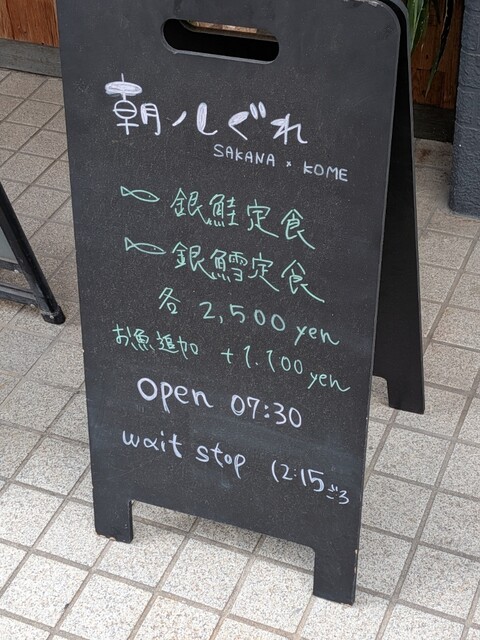 朝ノしぐれ
SAKANA × KOME
銀鮭定食
銀鱈定食
各 2,500 yen
お魚追加 +1.100 yen
open 07:30
wait stop 12:15ごろ